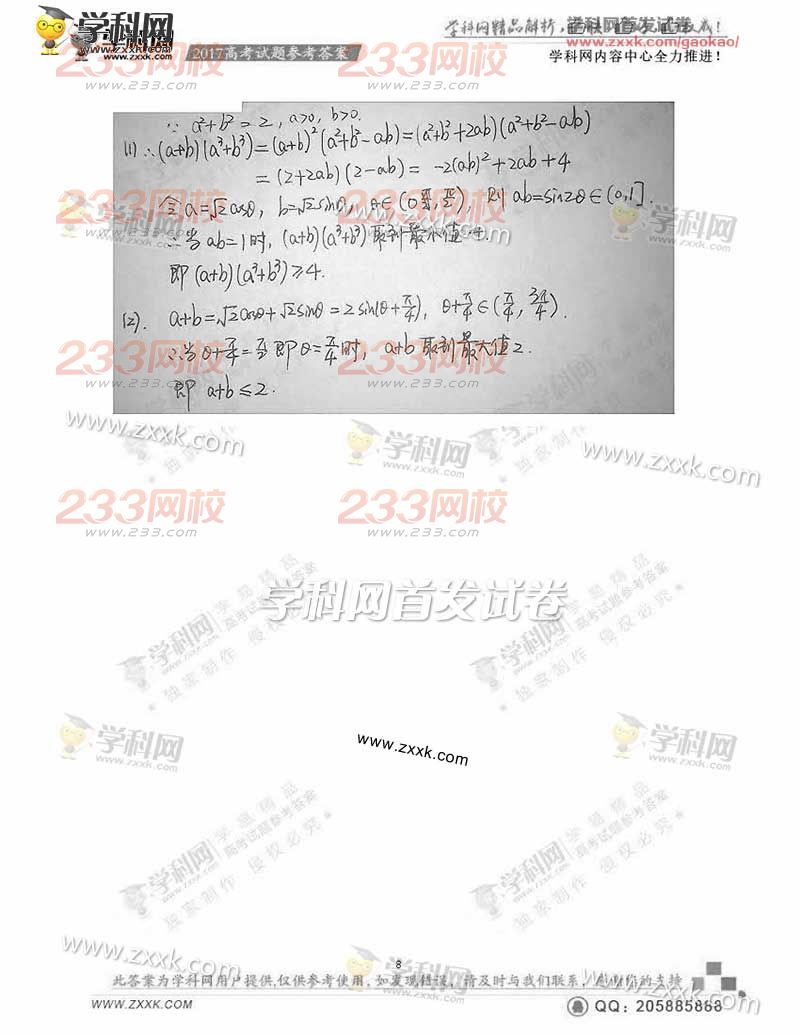 学科网
www.zxxk.com
2017高考试题参考答案
www.zxxk.com/gaokao/
学科网内容中心全力推进!
∵ a²+b²=2, a>0, b>0.
(1) ∴(a+b)(a³+b³)=(a+b)²(a²+b²-ab)=(a²+b²+2ab)(a²+b²-ab)
=(2+2ab)(2-ab)= -2(ab)²+2ab+4
令 a=√2cosθ, b=√2sinθ, θ∈(0, π/2), 则 ab=sin2θ∈(0,1].
∴当 ab=1时, (a+b)(a³+b³)取到最小值4.
即 (a+b)(a³+b³)≥4.
(2). a+b=√2cosθ+√2sinθ=2sin(θ+π/4), θ+π/4∈(π/4, 3π/4).
∴当θ+π/4=π/2 即θ=π/4时, a+b 取到最大值2.
即 a+b≤2.
233网校
www.233.com
学科网首发试卷
www.zxxk.com
8
此答案为学科网用户提供,仅供参考使用,如发现错误,请及时与我们联系,感谢你的支持
WWW.ZXXK.COM
QQ: 205885868